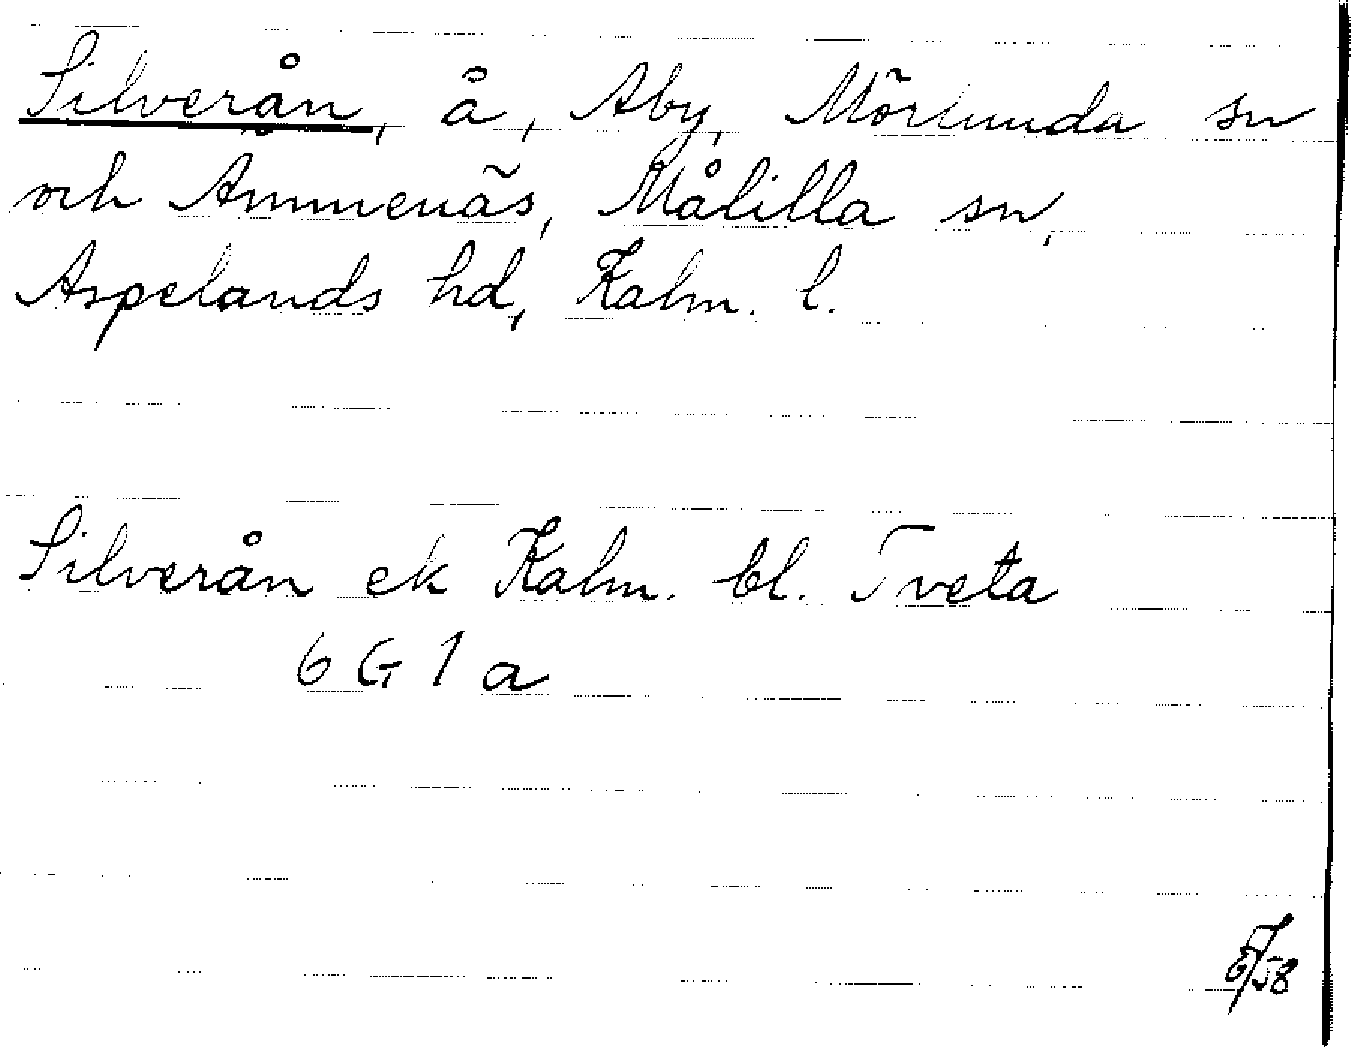 Silverån, å, Aby, Mörlunda sn
och Ämmenäs, Målilla sn,
Aspelands hd, Kalm. l.
Silverån ek Kalm. bl. Tveta
6 G 1 a